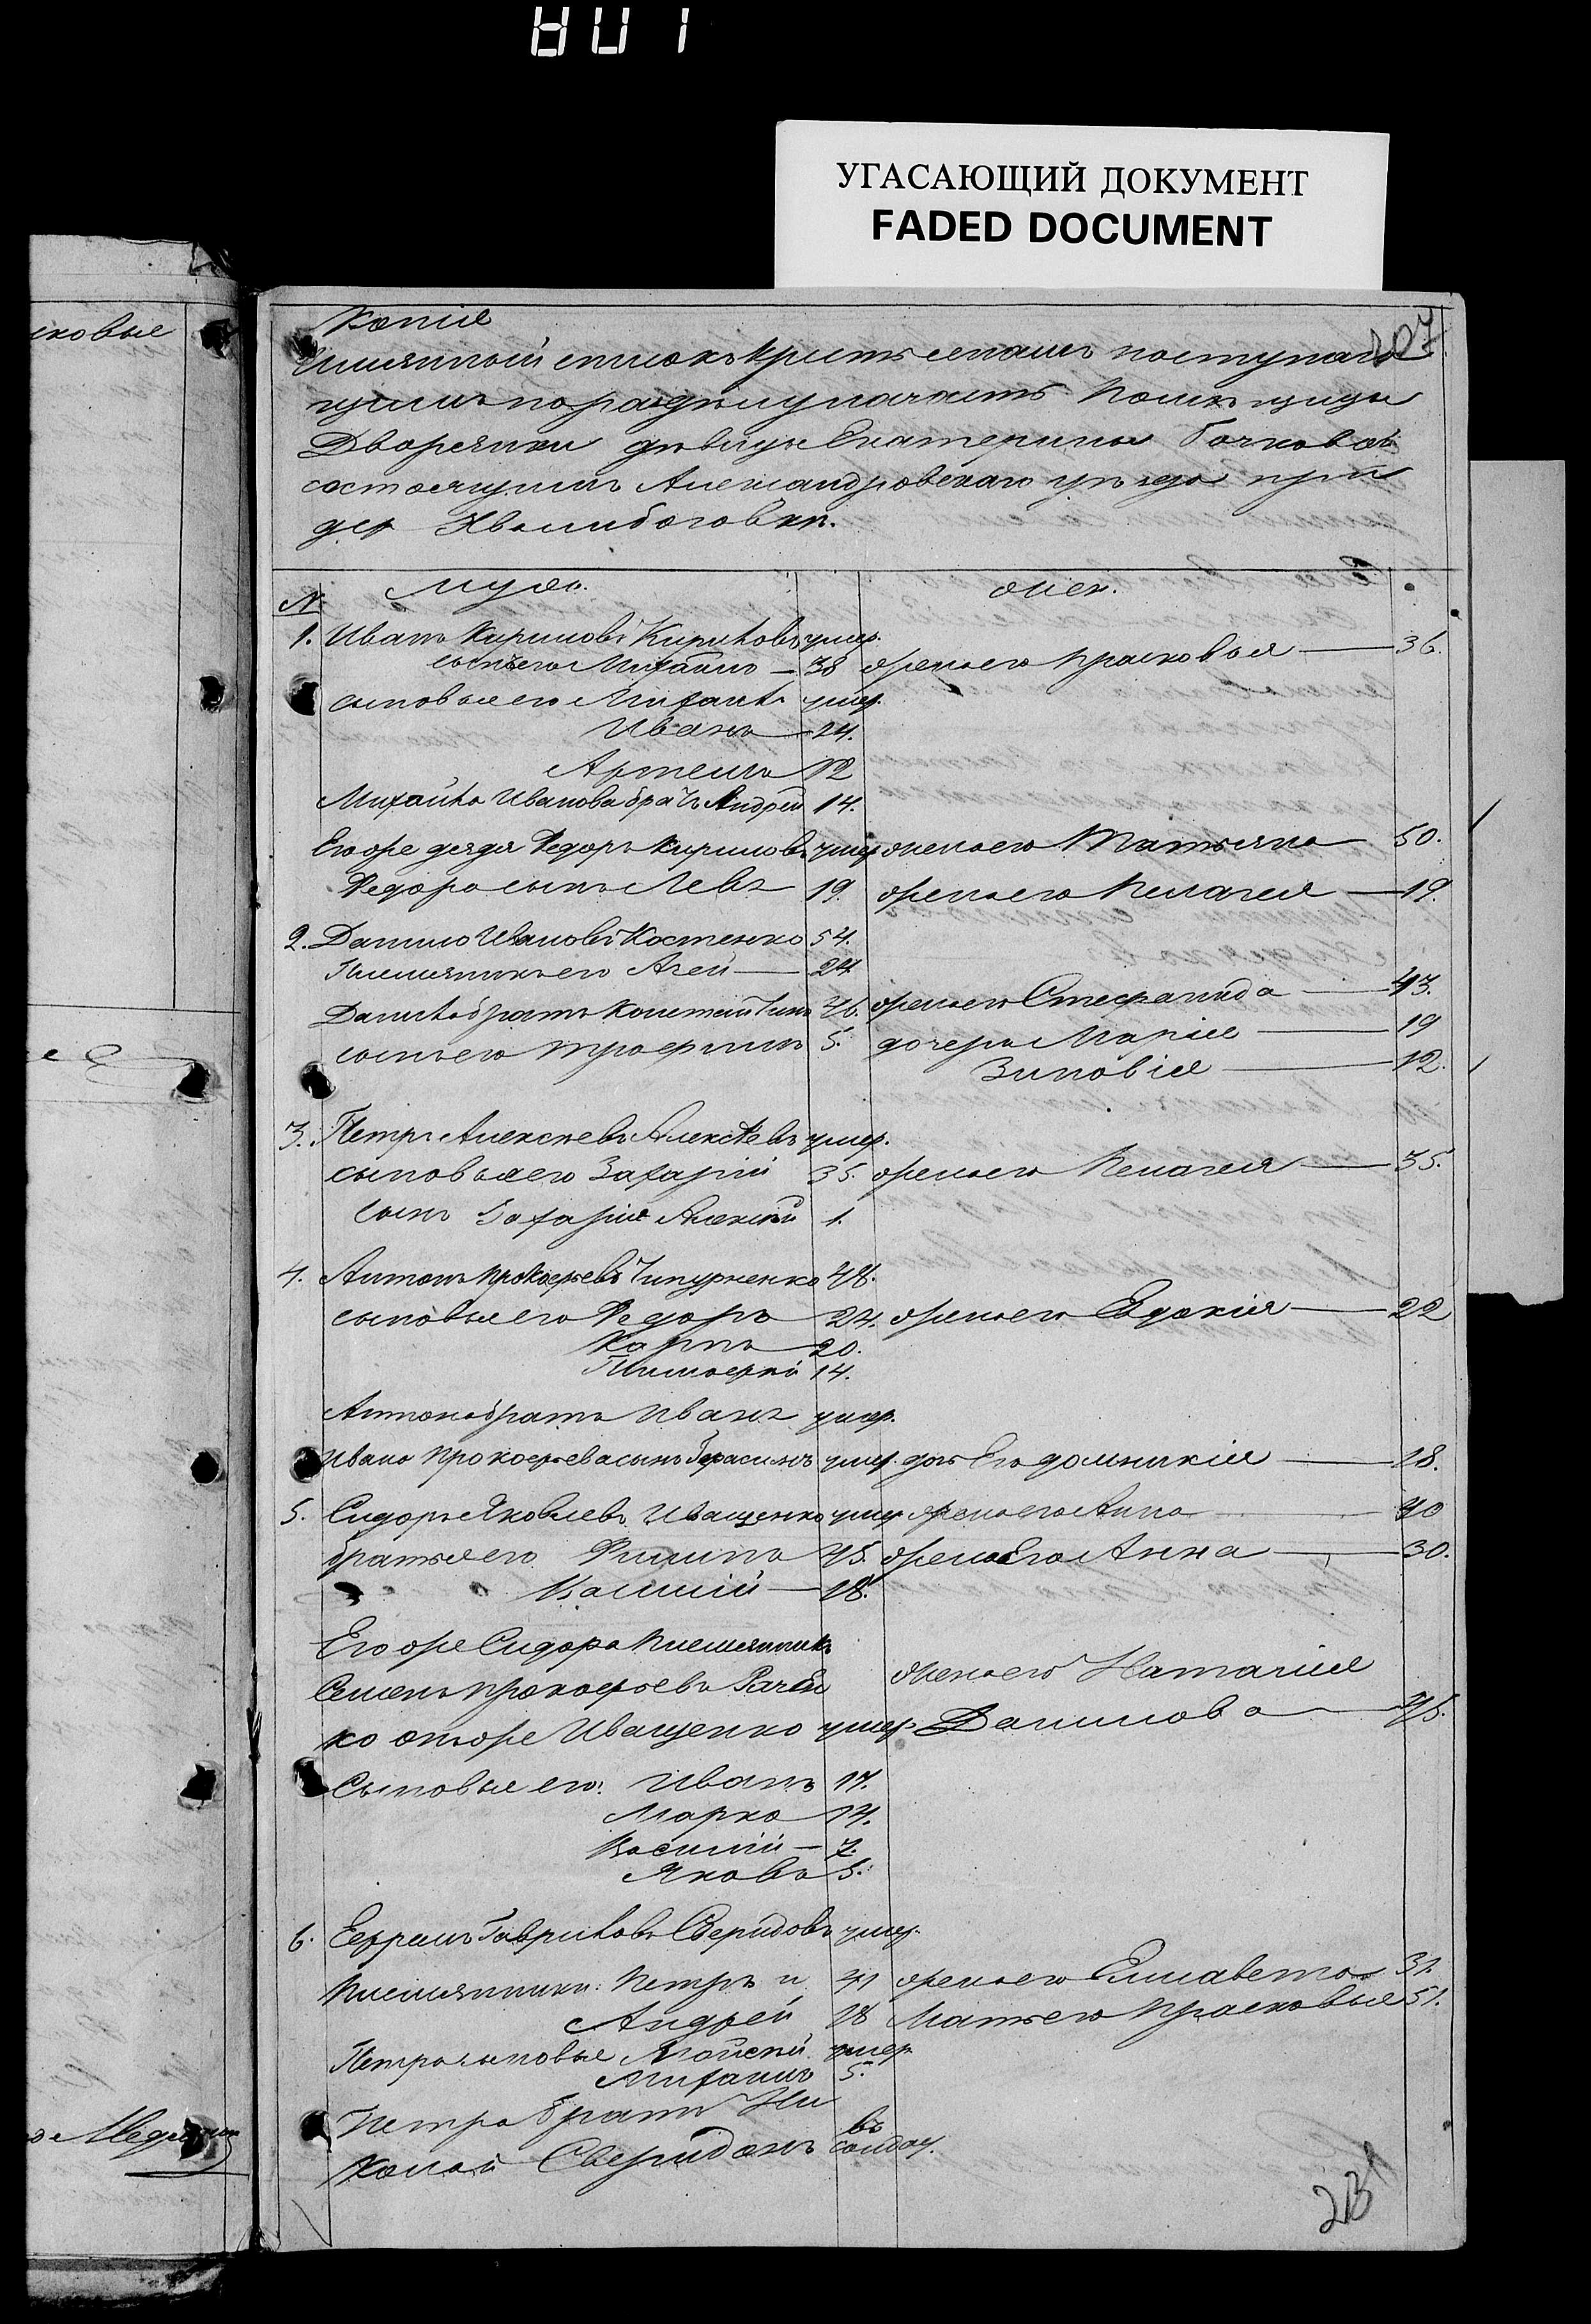 УГАСАЮЩИЙ ДОКУМЕНТ
FADED DOCUMENT
ковые
Копія
207
Именный списокъ Крестьянамъ поступаю
щимъ по раздѣлу участь Помѣщицы
Дворянки дѣвицы Екатерины Бочковой
состоящимъ Александровскаго уѣзда при
дер Хвалибоговки.
N Муж. Жен.
1. Иванъ Кириловъ Кириловъ умер.
сынъ его Михаилъ — 38 жена его Прасковья — 36.
сыновья его Михаилъ умер.
Иванъ — 24.
Артемъ 12
Михайла Иванова братъ Андрей 14.
Его же дядя Федоръ Кириловъ умер жена его Татьяна — 50.
Федора сынъ Левъ 19. жена его Пелагея — 19.
2. Данило Ивановъ Костенко 54.
Племянникъ его Агей — 24
Данила братъ Константинъ 46. жена его Стефанида — 43.
сынъ его Трофимъ 5. дочери Марія — 19
Зиновія — 12.
3. Петръ Алексѣевъ Алексѣевъ умер.
сыновья его Захарій 35. жена его Пелагея — 35.
сынъ Захарія Алексѣй 1.
4. Антонъ Прокофьевъ Чипурненко 48.
сыновья его Федоръ 24. жена его Евдокія — 22
Карпъ 20.
Тимофей 14.
Антона братъ Иванъ умер.
Ивана Прокофьева сынъ Герасимъ умер. дочь Его Домникія — 18.
5. Сидоръ Яковлевъ Иващенко умер жена его Анна — 40
братья его Филипъ 45. жена Его Анна — 30.
Василій — 18.
Его же Сидора племянникъ
Семенъ Прокофьевъ
ко онъ же Иващенко умер.
жена его Наталія
Данилова — 46.
Сыновья его: Иванъ 17.
Марко 14.
Василій — 7.
Яковъ 5.
6. Ефремъ Гавриловъ Сверидовъ умер.
Племянники: Петръ и 41 жена его Елисавета 31.
Андрей 18 Мать его Прасковья 51.
Петра сыновья Моисей умер
Михаилъ 5.
Петра братъ Ни
колай Сверидовъ въ солдат.